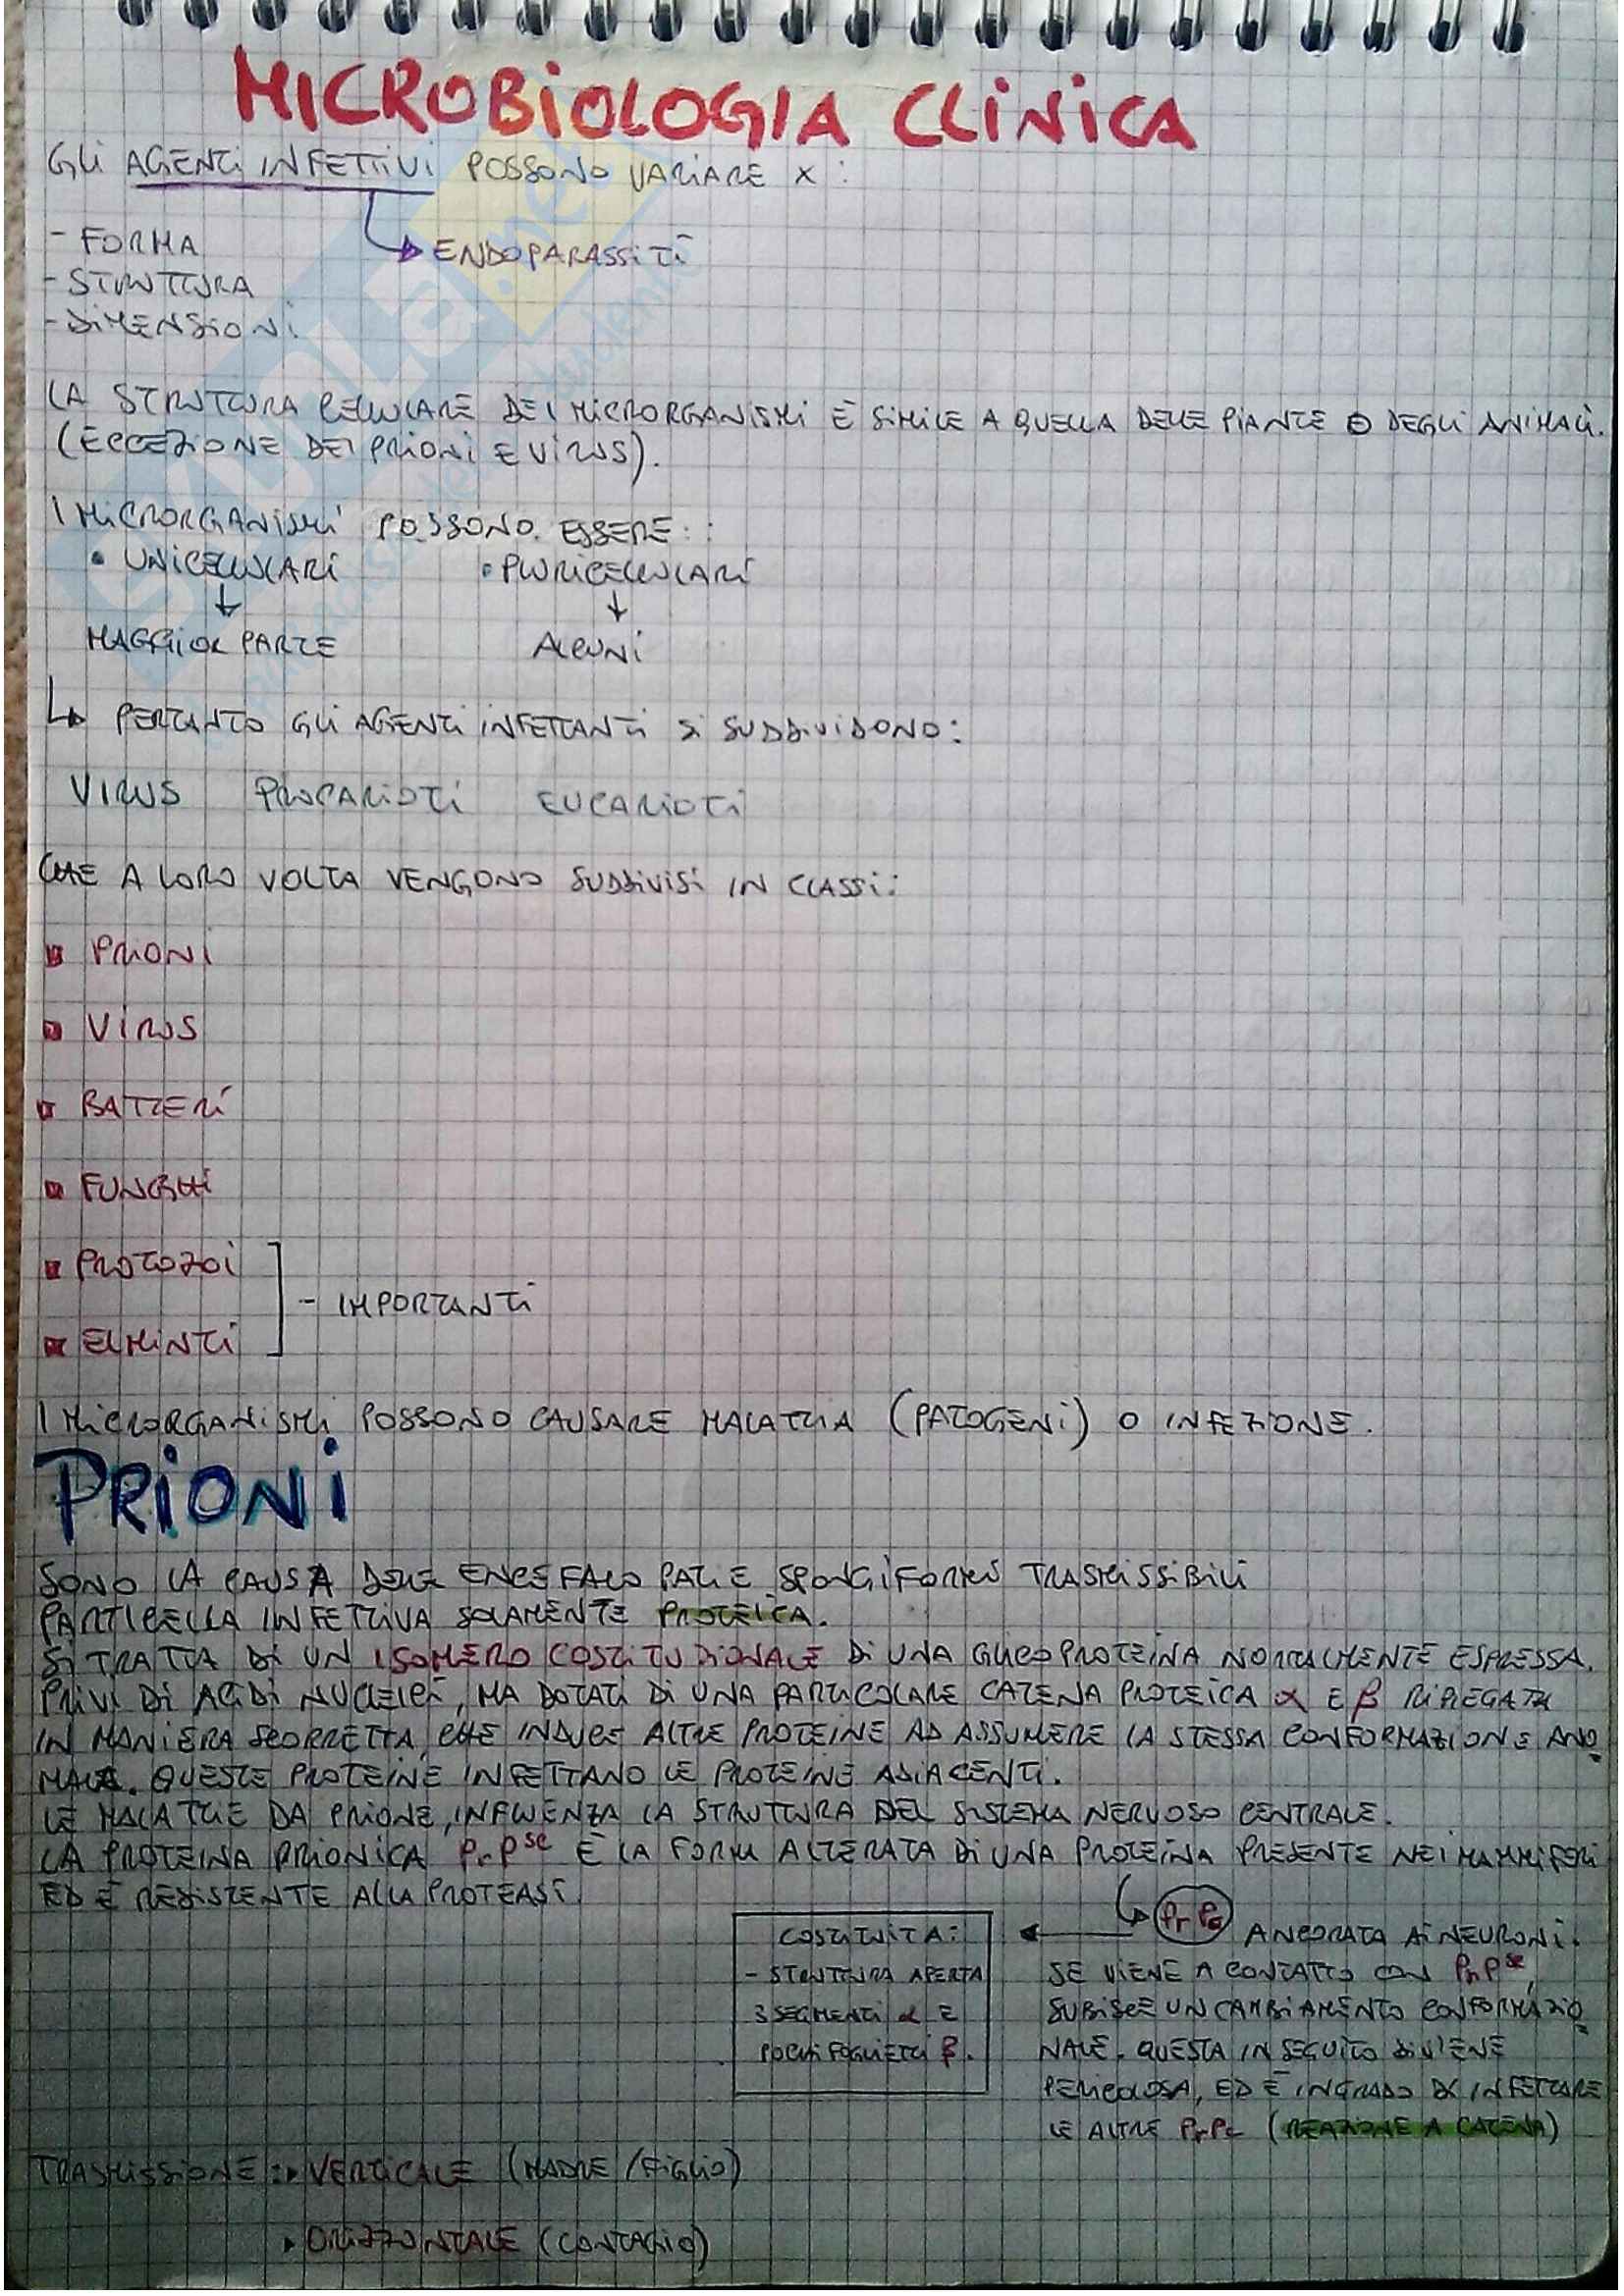 MICROBIOLOGIA CLINICA
GLI AGENTI INFETTIVI POSSONO VARIARE X :
- FORMA
ENDOPARASSITI
- STRUTTURA
- DIMENSIONI
LA STRUTTURA CELLULARE DEI MICRORGANISMI È SIMILE A QUELLA DELLE PIANTE O DEGLI ANIMALI.
(ECCEZIONE DEI PRIONI E VIRUS).
I MICRORGANISMI POSSONO ESSERE :
• UNICELLULARI • PLURICELLULARI
↓ ↓
MAGGIOR PARTE ALCUNI
↳ PERTANTO GLI AGENTI INFETTANTI SI SUDDIVIDONO:
VIRUS PROCARIOTI EUCARIOTI
CHE A LORO VOLTA VENGONO SUDDIVISI IN CLASSI:
PRIONI
VIRUS
BATTERI
FUNGHI
PROTOZOI
- IMPORTANTI
ELMINTI
I MICRORGANISMI POSSONO CAUSARE MALATTIA (PATOGENI) O INFEZIONE.
PRIONI
SONO LA CAUSA DELLE ENCEFALOPATIE SPONGIFORMI TRASMISSIBILI
PARTICELLA INFETTIVA SOLAMENTE PROTEICA.
SI TRATTA DI UN ISOMERO COSTITUZIONALE DI UNA GLICOPROTEINA NORMALMENTE ESPRESSA.
PRIVI DI ACIDI NUCLEICI, MA DOTATI DI UNA PARTICOLARE CATENA PROTEICA α E β RIPIEGATA
IN MANIERA SCORRETTA, CHE INDUCE ALTRE PROTEINE AD ASSUMERE LA STESSA CONFORMAZIONE ANO
MALA. QUESTE PROTEINE INFETTANO LE PROTEINE ADIACENTI.
LE MALATTIE DA PRIONE, INFLUENZA LA STRUTTURA DEL SISTEMA NERVOSO CENTRALE.
LA PROTEINA PRIONICA PrPsc È LA FORMA ALTERATA DI UNA PROTEINA PRESENTE NEI MAMMIFERI
ED È RESISTENTE ALLA PROTEASI.
PrPc ANCORATA AI NEURONI.
SE VIENE A CONTATTO CON PrPsc,
SUBISCE UN CAMBIAMENTO CONFORMAZIO
NALE. QUESTA IN SEGUITO DIVIENE
PERICOLOSA, ED È IN GRADO DI INFETTARE
LE ALTRE PrPc (REAZIONE A CATENA)
COSTITUITA:
- STRUTTURA APERTA
3 SEGMENTI α E
POCHI FOGLIETTI β.
TRASMISSIONE : VERTICALE (MADRE / FIGLIO)
ORIZZONTALE (CONTAGIO)